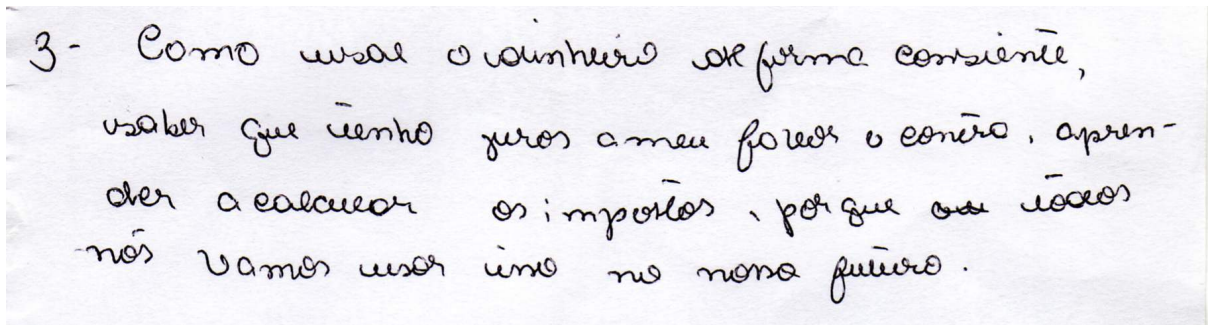 3- Como usar o dinheiro de forma consiente,
saber que tenho juros a meu favor o contra, apren-
der a calcular os impostos, porque todos
nós vamos usar isso no nosso futuro.